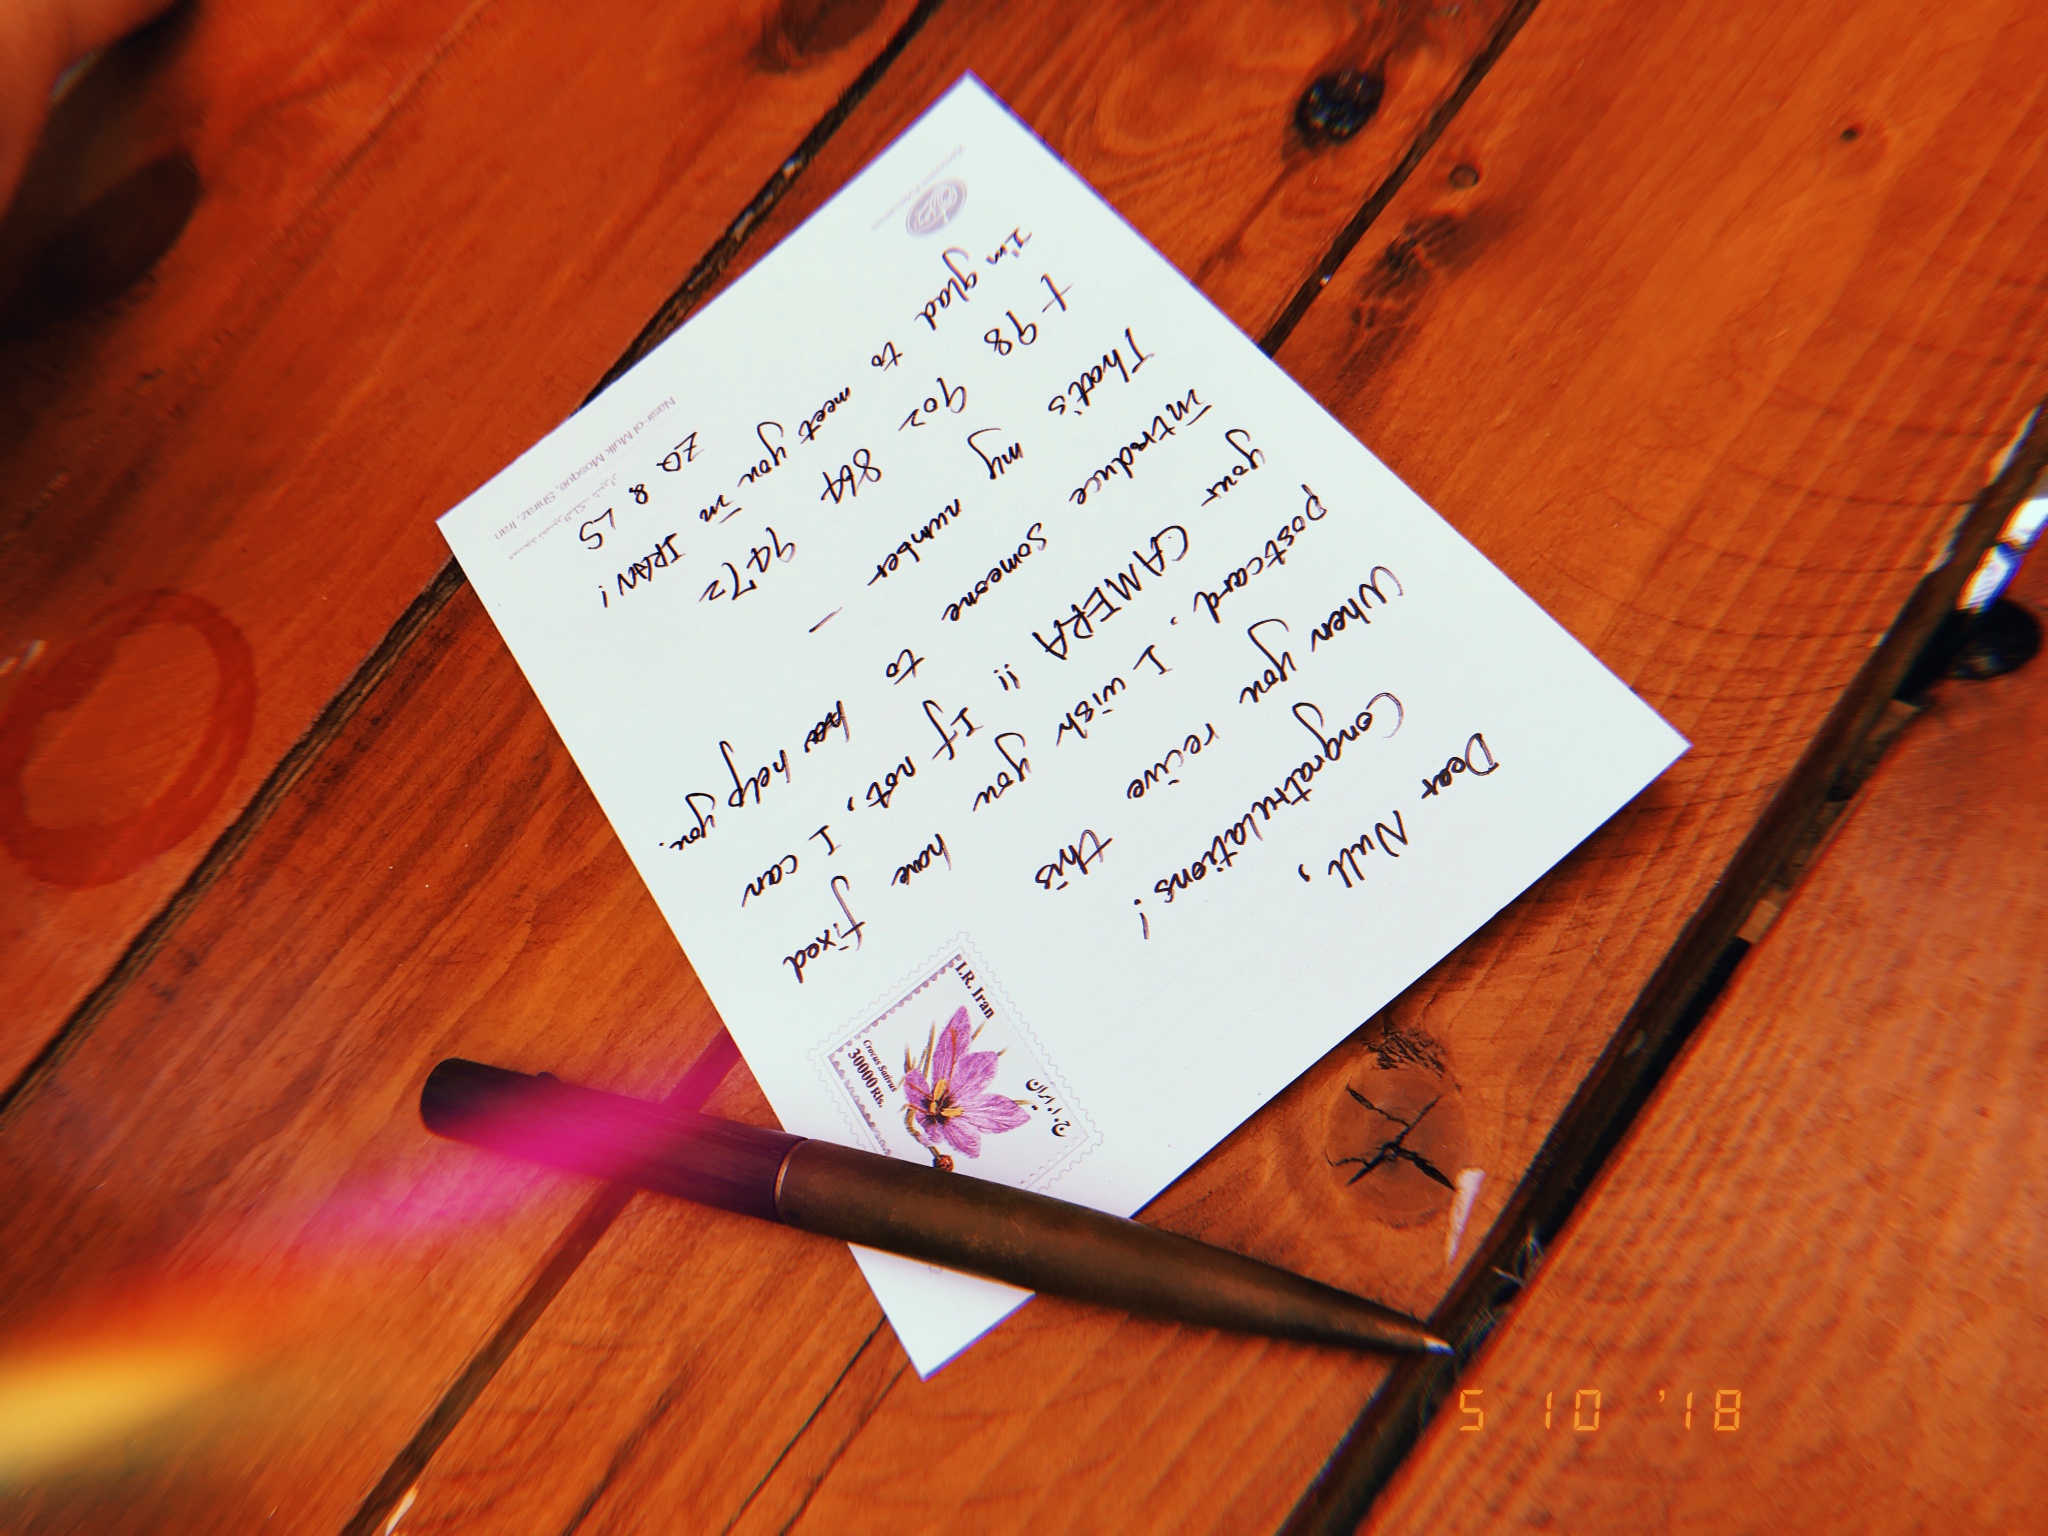 Dear Null,
Congratrulations!
When you recive this
postcard. I wish you have fixed
your CAMERA !! If not, I can
introduce someone to help you.
That's my number —
+98 902 864 9472
I'm glad to meet you in IRAN!
ZQ & LS
I.R. Iran
ج. ا. ایران
Crocus Sativus
30000 Rls.
مسجد نصیرالملک - شیراز
Nasir-ol Mulk Mosque, Shiraz, Iran
5 10 '18